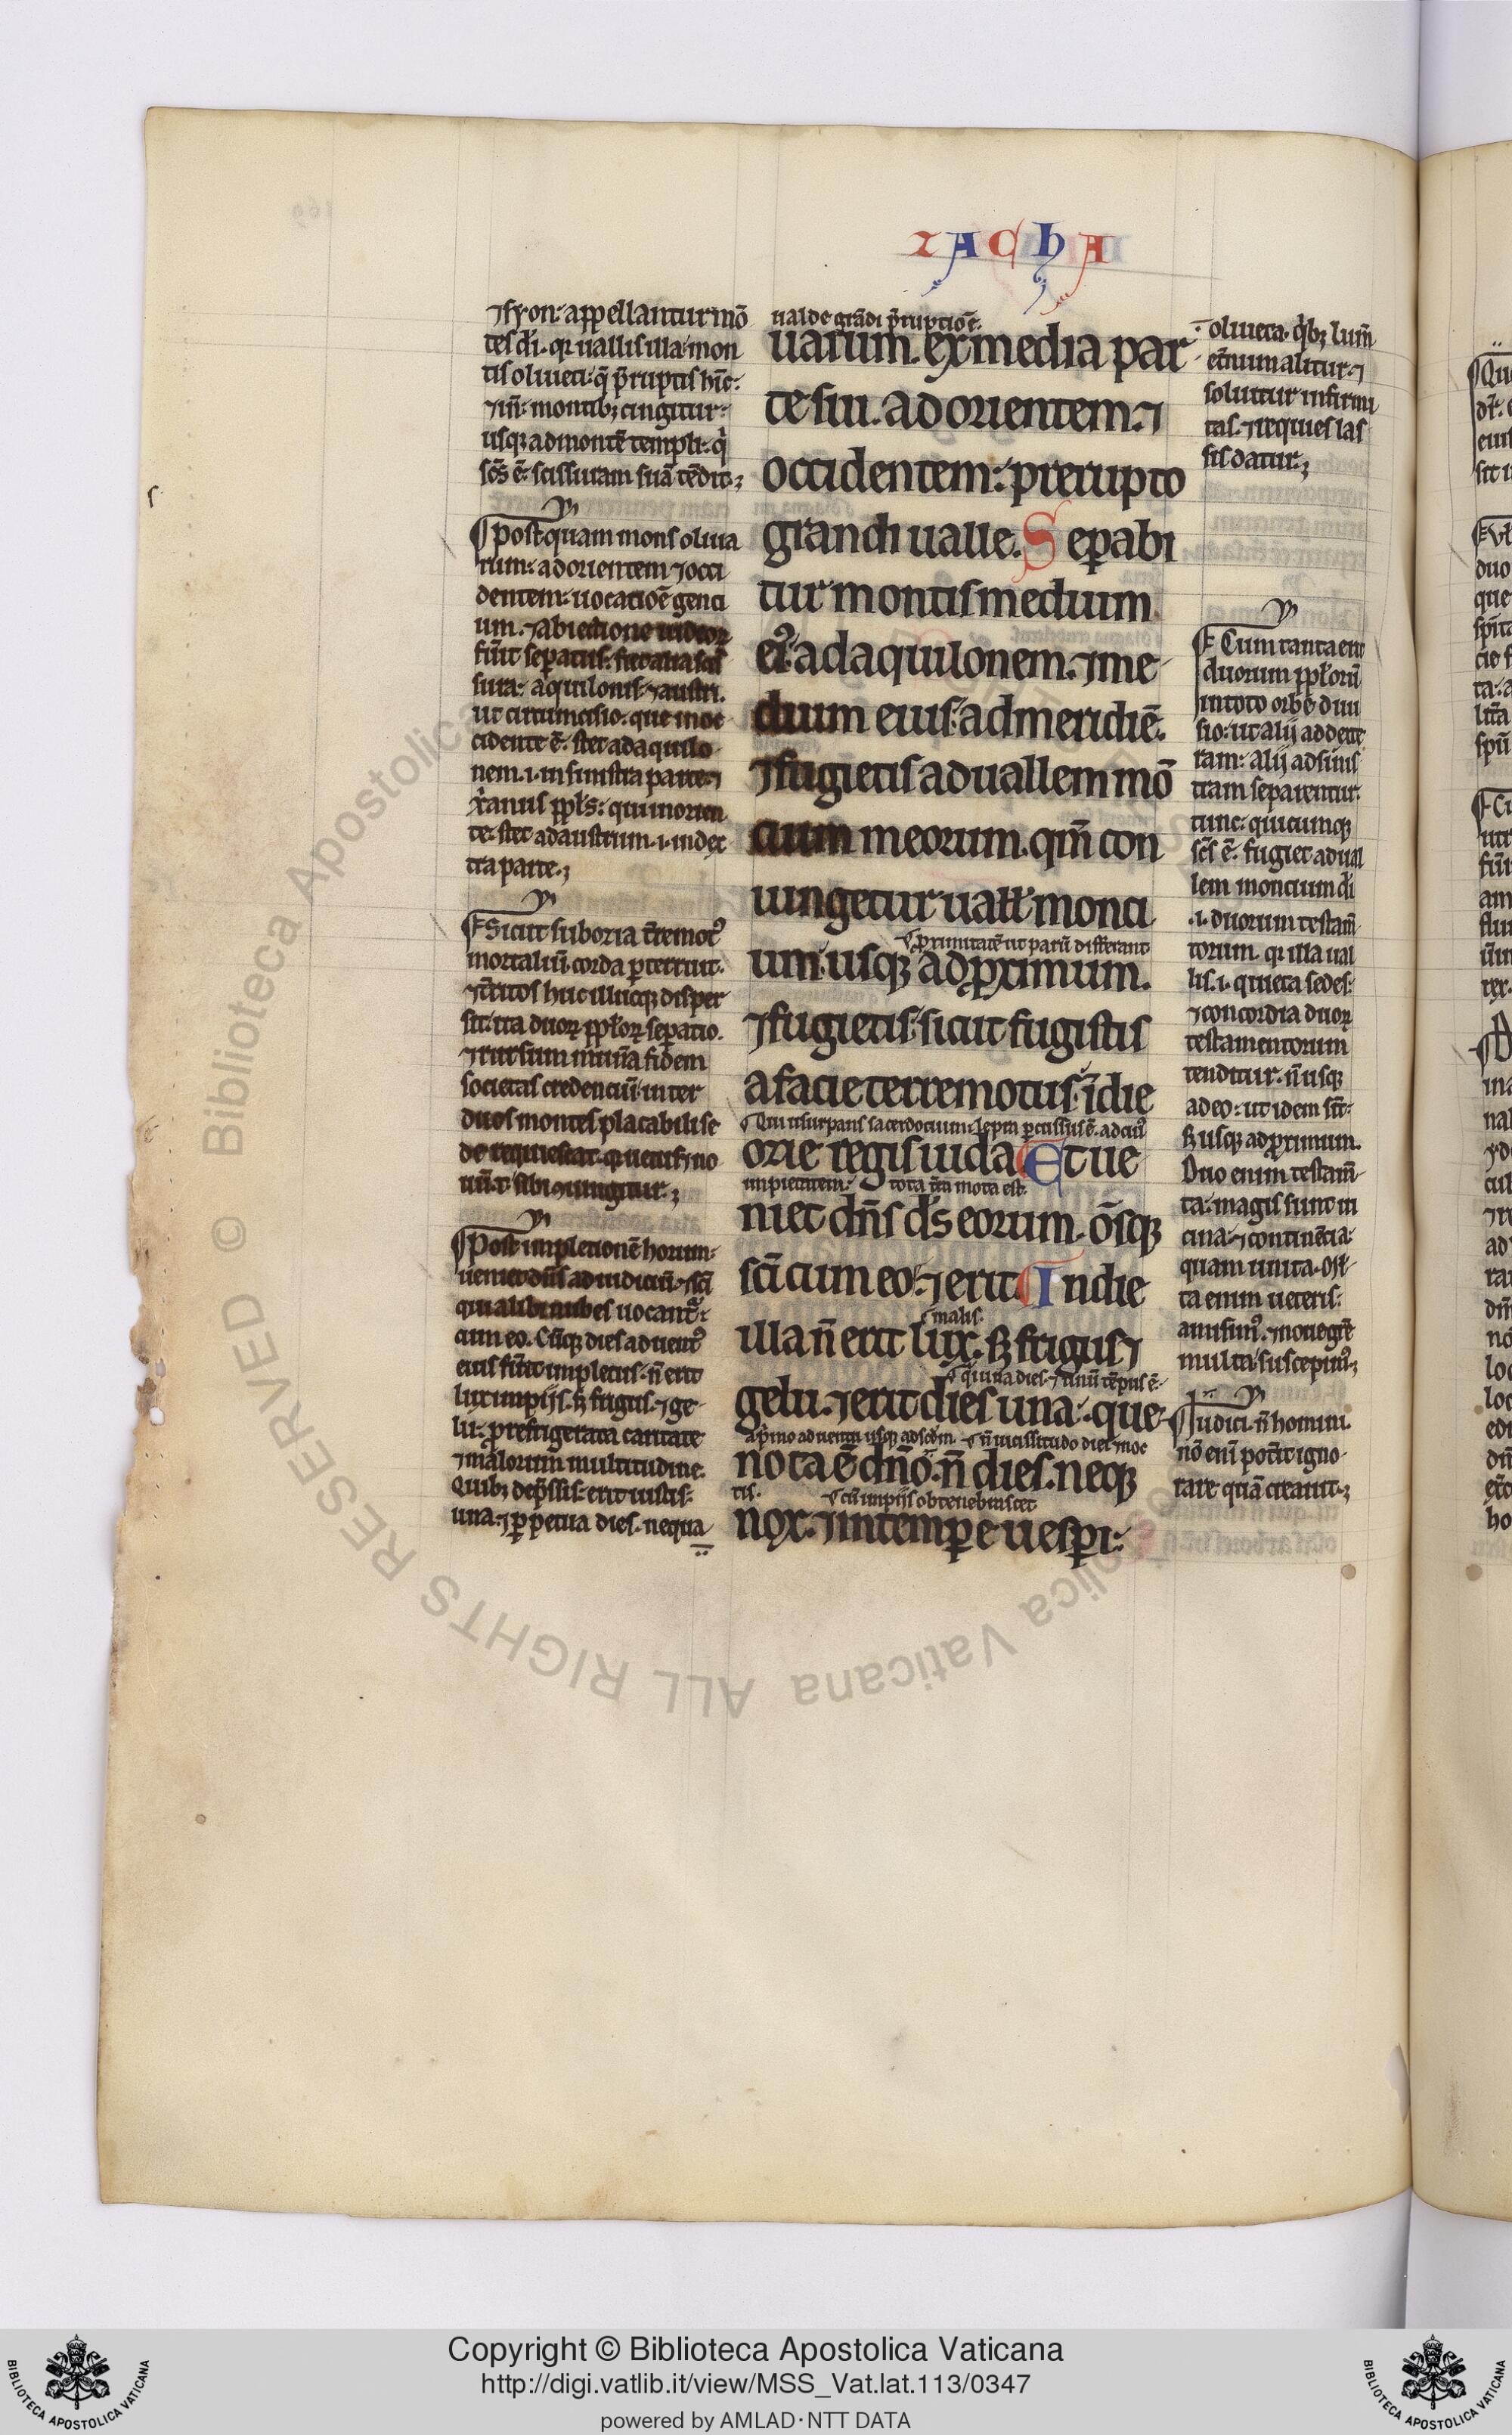 ZACHA
⁊ syon: appellantur mō
tes dı̄. qr uallis illa mon
tis oliueti: q̄ p̄ruptis hīc:
⁊ iñ: montibꝫ cingitur:
usqꝫ ad montē templi: q̇
sc̄s ē: scissuram suā tēdit.
¶ Postquam mons oliua
rum: ad orientem ⁊ occi
dentem: uocatiōe genti
um. ⁊ abiectione iudeoꝝ
fūit sepatus: fiet alia scis
sura: aquilonis: ⁊ austri.
ut circumcisio: que in oc
cidente ē: stet ad aquilo
nem .i. in sinistra parte. ⁊
xp̄ianus ppl̄s: qui in orien
te: stet ad austrum .i. in dex
tra parte.
¶ Sicut sub ozia t̄remotꝰ
mortaliū corda ꝑterruit.
⁊ t̄ritos huc illucqꝫ disper
sit: ita duoꝝ ppl̄oꝝ sepatio.
⁊ rursum in una fidem
societas credenciū: inter
duos montes placabili se
de requiescat. que urisqꝫ no
um̄t sibi ꝯiungitur.
¶ Post impletionē horum:
ueniet dn̄s ad iudiciū. ⁊ sc̄i
qui alibi nubes uocant̄:
cum eo. Cūqꝫ dies aduentꝰ
eius fūit impletus: n̄ erit
lux impijs. sꝫ frigus. ⁊ ge
lu: prefrigerata caritate
⁊ malorum multitudine.
Quibꝫ dep̄ssis: erit iustis:
una. ⁊ ꝑpetua dies. nequa
ualde grādi p̄ruptiōe.
uarum. ex media par
te sui. ad orientem. ⁊
occidentem: prerupto
grandi ualle. Separabi
tur montis medium
eiꝰ ad aquilonem. ⁊ me
dium eius: ad meridiē.
⁊ fugietis ad uallem mō
cium meorum. qm̄ con
iungetur uall' monci
ꝓximitatē ut parū differant
um: usqꝫ ad ꝓximum.
⁊ fugietis: sicut fugistis
a facie terremotus: ī die
Qui usurpans sacerdocium: lepra ꝑcussus ē. ad ciuꝰ
ozie regis iuda. Et ue
impietatem: tota t̄ra mota est.
niet dn̄s d̄s eorum. ōsqꝫ
sc̄i cum eo: ⁊ erit. In die
malis.
illa n̄ erit lux. sꝫ frigus ⁊
q̄ una dies. ⁊ unū tēpus ē.
gelu. ⁊ erit dies una: que
a p̄mo aduentu usqꝫ ad scd̄m. n̄ uicissitudo diei ⁊ noc
nota ē dn̄o. n̄ dies. neqꝫ
tis. cū impijs obtenebrascet
nox. ⁊ in tempore uesperi:
oliueta. q̇bꝫ lum̄
et̄num alitur. ⁊
soluitur infirmi
tas. ⁊ requies las
sis datur.
¶ Cum tanta erit
duorum ppl̄orū
in toto orbe diui
sio: ut alij ad dexte
ram: alij ad sinis
tram separentur.
tunc: quicumqꝫ
sc̄s ē. fugiet ad ual
lem moncium dı̄
.i. duorum testam̄
torum. qr illa ual
lis .i. quieta sedes:
⁊ concordia duoꝝ
testamentorum
tenditur. n̄ usqꝫ
adeo: ut idem sīt:
sꝫ usqꝫ ad ꝓximum.
Duo enim testam̄
ta: magis sunt ui
cina: ⁊ continētia:
quam unita. Osti
ta enim ueteris:
amisimꝰ. ⁊ noue gr̄e
multa suscepimꝰ.
¶ Iudici. n̄ homini.
nō eni potuit igno
rare quā creauit.
Copyright © Biblioteca Apostolica Vaticana
http://digi.vatlib.it/view/MSS_Vat.lat.113/0347
powered by AMLAD·NTT DATA
BIBLIOTECA APOSTOLICA VATICANA
BIBLIOTECA APOSTOLICA VATICANA
© Biblioteca Apostolica Vaticana ALL RIGHTS RESERVED